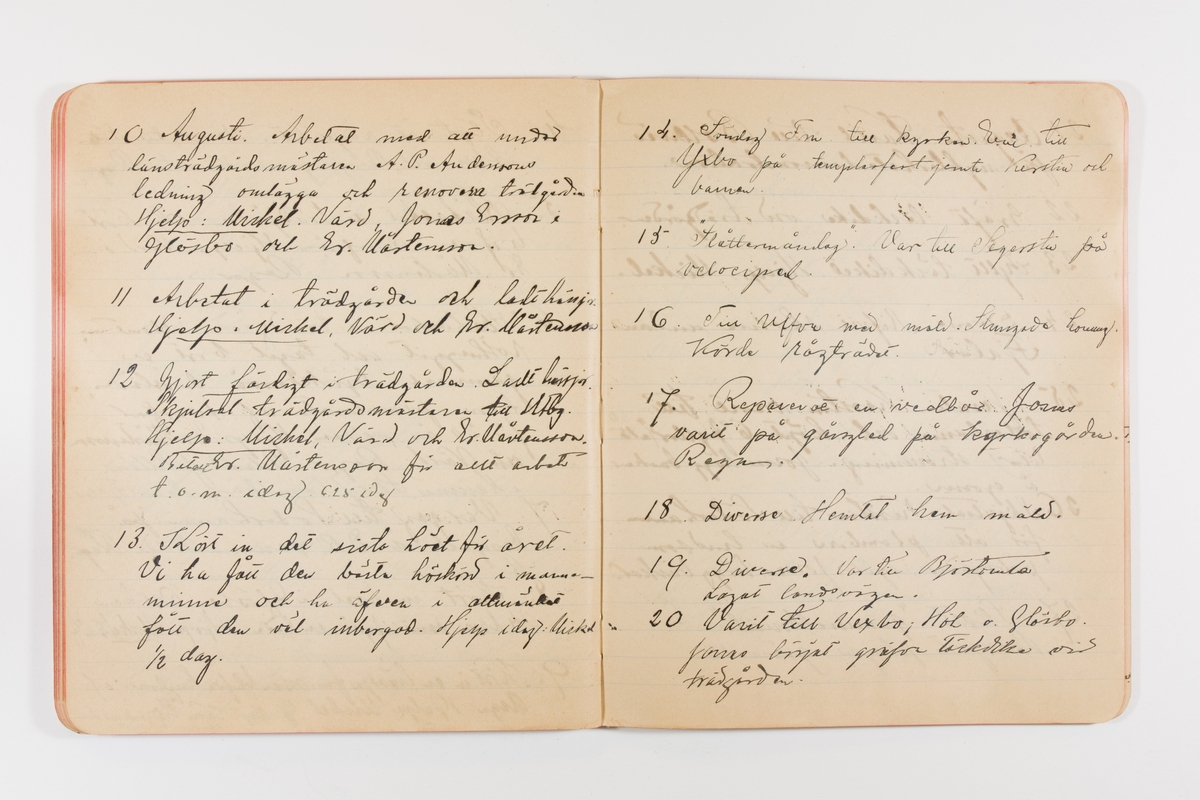 10 Augusti. Arbetat med att under
länsträdgårdsmästaren A. P. Anderssons
ledning omlägga och renovera trädgården
Hjelp: Mickel. Värd, Jonas Ersson i
Glösbo och Er. Mårtensson.
11 Arbetat i trädgården och ladt hässjr.
Hjelp. Mickel, Värd och Er. Mårtensson
12 Gjort färdigt i trädgården. Ladt hässjr.
Skjutsat trädgårdsmästaren till
Hjelp: Mickel, Värd och Er. Mårtensson.
Er. Mårtensson för allt arbete
t. o. m. idag. idag
13. Kört in det sista höet för året.
Vi ha fått den bästa höskörd i manna-
minne och ha äfven i allmänhet
fått den väl inbergad. Hjelp idag: Mickel
1/2 dag.
14. Söndag Fm till kyrkan. Em till
Yxbo på templarfest jemte Kerstin och
barnen.
15 "Slåttermåndag". Var till Segersta på
velociped.
16. Till med mäld. Slungade honung.
Körde rågträdet.
17. Reparerat en vedbår. Jonas
varit på gångled på kyrkogården.
Regn.
18. Diverse. Hemtat hem mäld.
19. Diverse. Var till Björtomta
Lagat landsvägen.
20 Varit till Vexbo, Hol o. Glösbo.
Jonas börjat gräfva täckdike vid
trädgården.